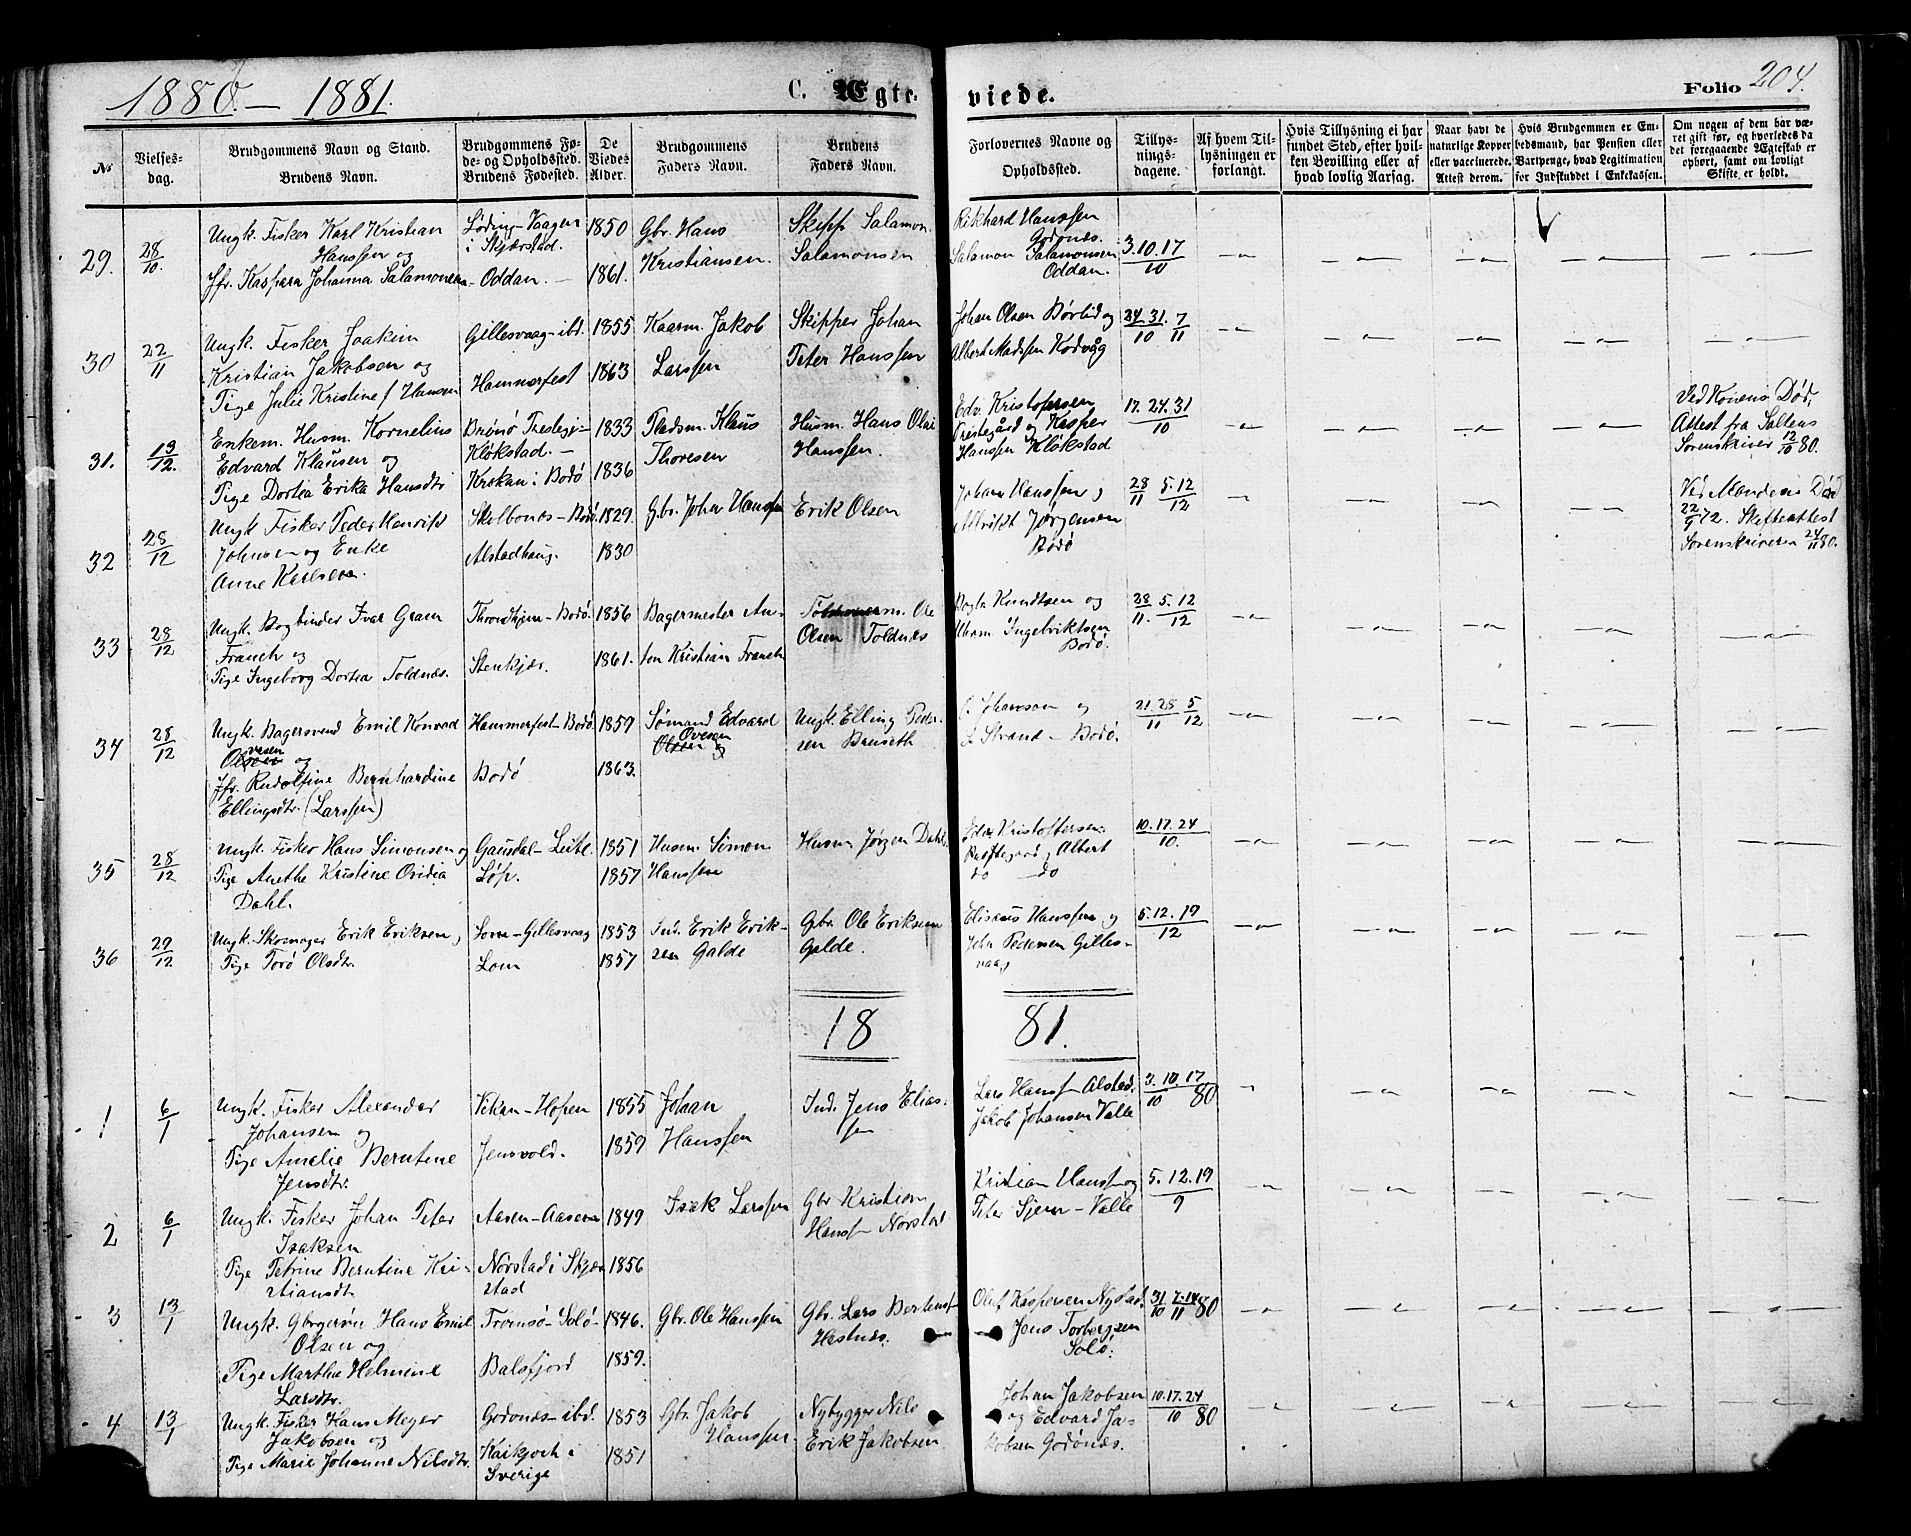 1880 – 1881.
C. Ægte-
viede.
Folio 204.
No
Vielses-
dag.
Brudgommens Navn og Stand.
Brudens Navn.
Brudgommens Fø-
de- og Opholdssted.
Brudens Fødested.
De
Viedes
Alder.
Brudgommens
Faders Navn.
Brudens
Faders Navn.
Forlovernes Navne og
Opholdssted.
Tillys-
nings-
dagene.
Af hvem Til-
lysningen er
forlangt.
Hvis Tillysning ei har
fundet Sted, efter hvil-
ken Bevilling eller af
hvad lovlig Aarsag.
Naar havt de
naturlige Kopper
eller vaccinerede.
Attest derom.
Hvis Brudgommen er Em-
bedsmand, har Pension eller
Vartpenge, hvad Legitimation
for Indskuddet i Enkekassen.
Om nogen af dem har væ-
ret gift før, og hvorledes da
det foregaaende Ægteskab er
ophørt, samt om lovligt
Skifte er holdt.
29.
28/10.
Ungk. Fisker Karl Kristian
Hanssen og
Jfr. Kaspara Johanna Salamonsen
Løding-Vaagen
i Skjærstad.
Oddan. –
1850
1861.
Gbr. Hans
Kristiansen.
Skipp Salamon
Salamonsen
Rikhard Hanssen
Godønes.
Salamon Salamonsen
Oddan.
3.10.17/10
30
22/11
Ungk. Fisker Joakim
Kristian Jakobsen og
Pige Julie Kristine Hansen
Gillesvaag – ibd.
Hammerfest
1855
1863
Kaarm. Jakob
Larssen
Skipper Johan
Peter Hanssen
Johan Olsen Børlid og
Albert Madssen Kodvåg
24.31./10 7/11
31.
19/12.
Enkem. Husm. Kornelius
Edvard Klausen og
Pige Dortea Erika Hansdtr
Brønø Prestegj-
Kløkstad. –
Krokan i Bodø
1833
1836
Pladsm. Klaus
Thoresen
Husm. Hans Olai
Hanssen.
Edv. Kristofersen
Prestegård og Kasper
Hanssen Kløkstad
17.24.31/10
Ved Konens Død,
Attest fra Saltens
Sorenskriver 12/10 80.
32
28/12
Ungk. Fisker Peder Henrik
Johnsen og Enke
Anne Karlsen.
Skolbones – Bodø.
Alstadhaug.
1829.
1830
Gbr. Johan Hanssen
Erik Olsen
Johan Hanssen og
Albrikt Jørgensen
Bodø
28/11 5.12/12
Ved Mandens Død
22/9 72. Skifteattest
Sorenskriveren 24/11 80.
33
28/12
Ungk. Bogbinder Ivar Gram
Franch og
Pige Ingeborg Dortea Toldnæs.
Throndhjem – Bodø.
Stenkjær.
1856
1861.
Bagermester An-
ton Kristian Franch
Ole
Olsen Toldnæs
Knudtsen og
Ingebriktsen
Bodø.
28/11. 5.12/12
34
28/12
Ungk. Bagersvend Emil Konrad
Ovesen og
Jfr. Rudolfine Bernhardine
Ellingsdtr. (Larssen)
Hammerfest – Bodø
Bodø
1859
1863.
Sømand Edvard
Ovesen
Ungk. Elling Peder-
sen Bruseth
Johanson og
Strand – Bodø.
21.28/11 5/12
35
28/12
Ungk. Fisker Hans Simonsen og
Pige Anethe Kristine Ovidia
Dahl.
Gausdal – Leitl.
Løp.
1851
1857
Husm. Simon
Hanssen
Husm Jørgen Dahl.
Edv. Kristoffersen.
Prestegaard og Albert
do do
10.17.24/10.
36
29/12
Ungk. Skomager Erik Eriksen,
Pige Torø Olsdtr.
Lom – Gillesvaag
Lom
1853
1857
Ind. Erik Erik-
sen Galde
Gbr. Ole Eriksen
Galde.
Eliseus Hanssen og
John Pedersen Gilles-
vaag
5.12.19/12
18 81.
1
6/1
Ungk. Fisker Alexander
Johansen og
Pige Amelie Berntine
Jensdtr.
Vikan – Hopen
Jensvold.
1855
1859
Johan
Hanssen
Ind. Jens Elias-
sen
Lars Hanss– Alstad.
Jakob Johansen Valle
3.10.17/10 80
2
6/1
Ungk. Fisker Johan Peter
Isaksen
Pige Petrine Berntine Kri-
stiansdtr.
Aasen – Aasen
Norstad i Skjær-
stad
1849
1856
Isak Larssen
Gbr Kristian
Hanss– Norstad
Kristian Hanss– og
Peter Sjem – Valle
5.12.19/9
3
13/1
Ungk. Gbrgerøn Hans Emil
Olsen og
Pige Martha Helmine
Larsdtr.
Tromsø – Solø –
Balsfjord
1846.
1859.
Gbr. Ole Hanssen
Gbr. Lars Bertenss–
Hestnæs.
Oluf Kaspersen Nystad.
Jens Torbergsen
Solø.
31/10 7.14/11 80
4
13/1
Ungk. Fisker Hans Meyer
Jakobsen og
Pige Marie Johanne Nilsdtr.
Godønes – ibd.
Kaikjock i
Sverige
1853
1851
Gbr. Jakob
Hanssen.
Nybygger Nils
Erik Jakobsen
Johan Jakobsen
og Edvard Ja-
kobsen Godønæs.
10.17.24/10 80